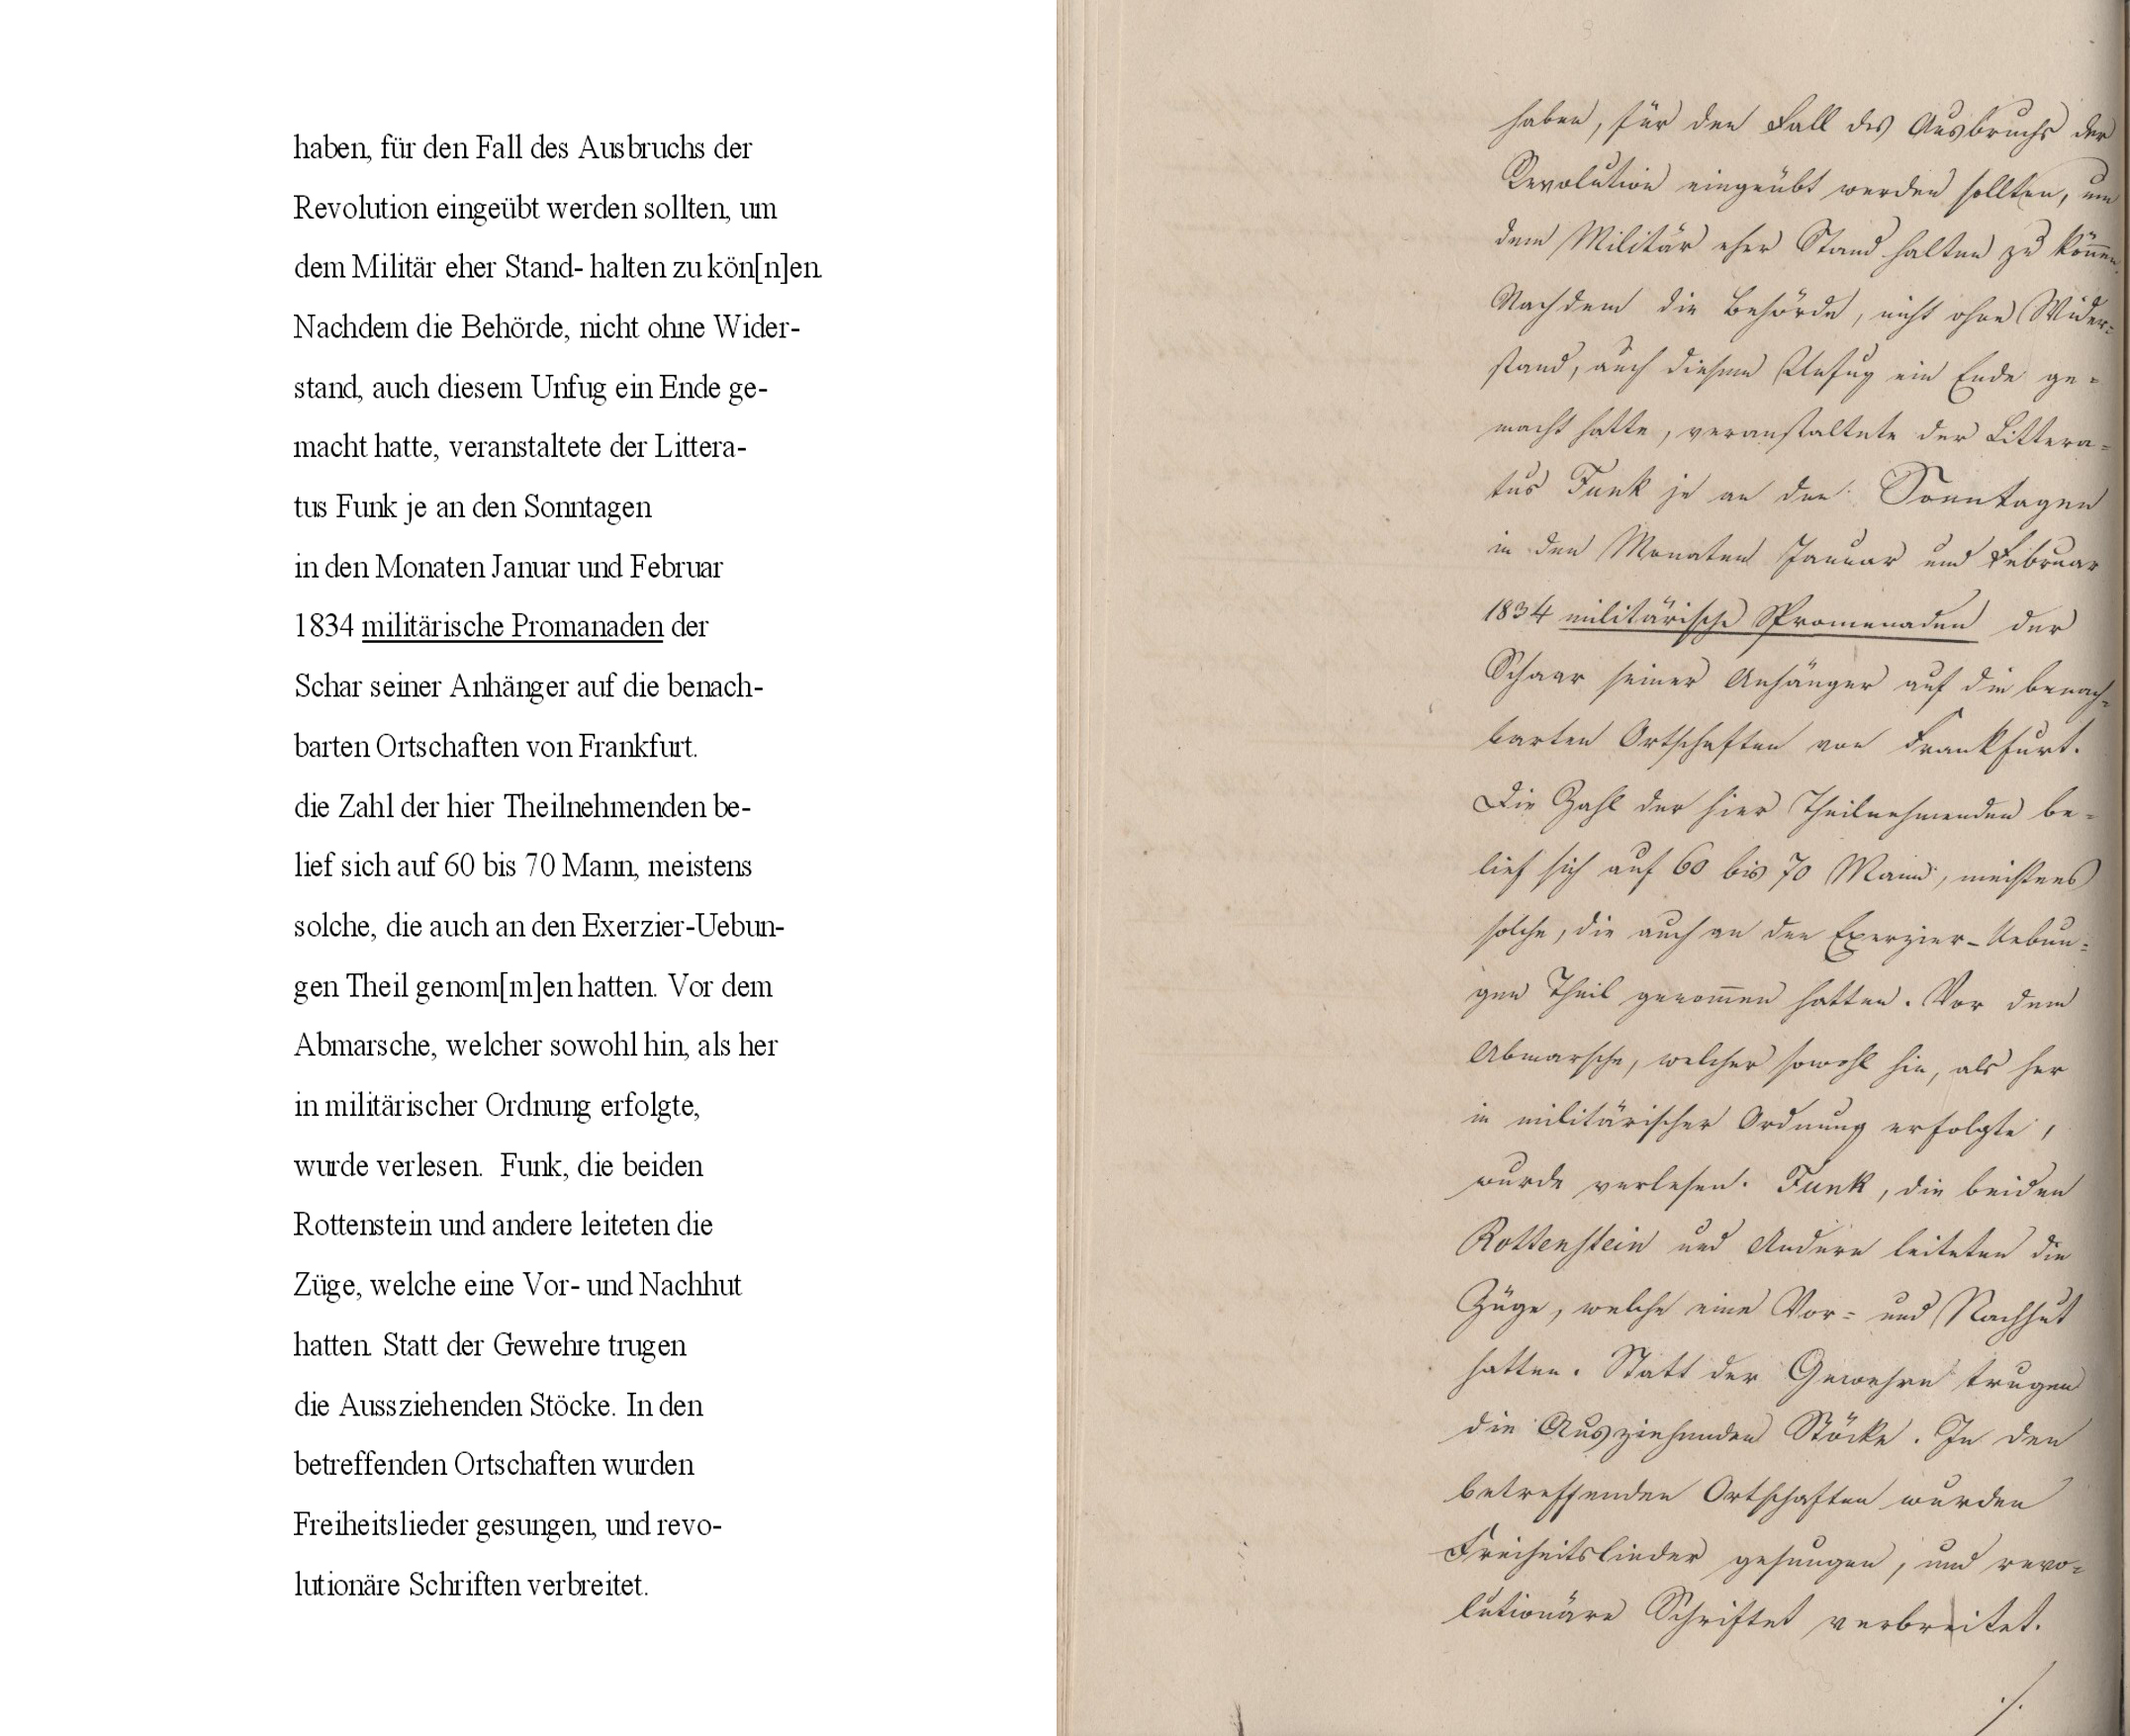 haben, für den Fall des Ausbruchs der
Revolution eingeübt werden sollten, um
dem Militär eher Stand- halten zu kön[n]en.
Nachdem die Behörde, nicht ohne Wider-
stand, auch diesem Unfug ein Ende ge-
macht hatte, veranstaltete der Littera-
tus Funk je an den Sonntagen
in den Monaten Januar und Februar
1834 militärische Promanaden der
Schar seiner Anhänger auf die benach-
barten Ortschaften von Frankfurt.
die Zahl der hier Theilnehmenden be-
lief sich auf 60 bis 70 Mann, meistens
solche, die auch an den Exerzier-Uebun-
gen Theil genom[m]en hatten. Vor dem
Abmarsche, welcher sowohl hin, als her
in militärischer Ordnung erfolgte,
wurde verlesen. Funk, die beiden
Rottenstein und andere leiteten die
Züge, welche eine Vor- und Nachhut
hatten. Statt der Gewehre trugen
die Aussziehenden Stöcke. In den
betreffenden Ortschaften wurden
Freiheitslieder gesungen, und revo-
lutionäre Schriften verbreitet.
haben, für den Fall des Ausbruchs der
Revolution eingeübt werden sollten, um
dem Militär eher Stand halten zu können.
Nachdem die Behörde, nicht ohne Wider=
stand, auch diesem Unfug ein Ende ge=
macht hatte, veranstaltete der Littera=
tus Funk je an den Sonntagen
in den Monaten Januar und Februar
1834 militärische Promenaden der
Schaar seiner Anhänger auf die benach=
barten Ortschaften von Frankfurt.
Die Zahl der hier Theilnehmenden be=
lief sich auf 60 bis 70 Mann, meistens
solche, die auch an den Exerzier-Uebun=
gen Theil genom̅en hatten. Vor dem
Abmarsche, welcher sowohl hin, als her
in militärischer Ordnung erfolgte,
wurde verlesen. Funk, die beiden
Rottenstein und Andere leiteten die
Züge, welche eine Vor= und Nachhut
hatten. Statt der Gewehre trugen
die Ausziehenden Stöcke. In den
betreffenden Ortschaften wurden
Freiheitslieder gesungen, und revo=
lutionäre Schriften verbreitet.
./.